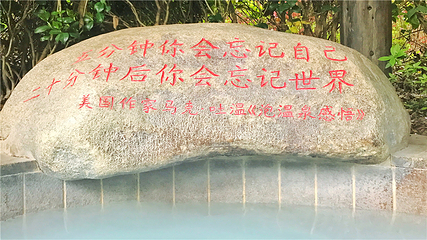 五分钟你会忘记自己
二十分钟后你会忘记世界
美国作家马克·吐温《泡温泉感悟》